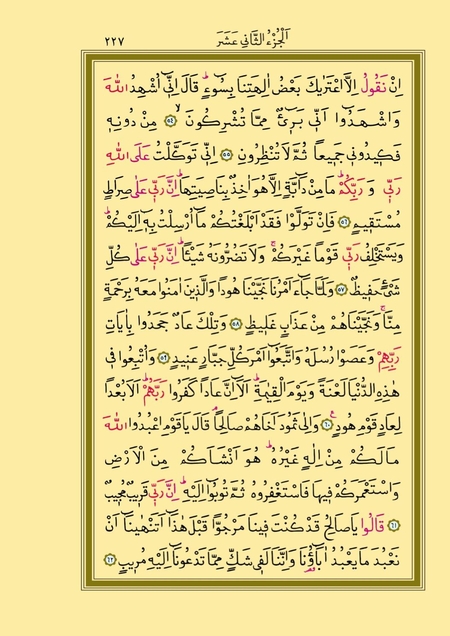 اَلْجُزْءُ الثَّانِي عَشَرَ ٢٢٧
اِنْ نَقُولُ اِلَّا اعْتَرٰيكَ بَعْضُ اٰلِهَتِنَا بِسُوٓءٍۜ قَالَ اِنّ۪ٓي اُشْهِدُ اللّٰهَ
وَاشْهَدُٓوا اَنّ۪ي بَر۪ٓيءٌ مِمَّا تُشْرِكُونَۙ ﴿٥٤﴾ مِنْ دُونِه۪
فَك۪يدُون۪ي جَم۪يعاً ثُمَّ لَا تُنْظِرُونِ ﴿٥٥﴾ اِنّ۪ي تَوَكَّلْتُ عَلَى اللّٰهِ
رَبّ۪ي وَرَبِّكُمْۜ مَا مِنْ دَٓابَّةٍ اِلَّا هُوَ اٰخِذٌ بِنَاصِيَتِهَاۜ اِنَّ رَبّ۪ي عَلٰى صِرَاطٍ
مُسْتَق۪يمٍ ﴿٥٦﴾ فَاِنْ تَوَلَّوْا فَقَدْ اَبْلَغْتُكُمْ مَٓا اُرْسِلْتُ بِه۪ٓ اِلَيْكُمْۜ
وَيَسْتَخْلِفُ رَبّ۪ي قَوْماً غَيْرَكُمْۚ وَلَا تَضُرُّونَهُ شَيْـٔاًۜ اِنَّ رَبّ۪ي عَلٰى كُلِّ
شَيْءٍ حَف۪يظٌ ﴿٥٧﴾ وَلَمَّا جَٓاءَ اَمْرُنَا نَجَّيْنَا هُوداً وَالَّذ۪ينَ اٰمَنُوا مَعَهُ بِرَحْمَةٍ
مِنَّاۚ وَنَجَّيْنَاهُمْ مِنْ عَذَابٍ غَل۪يظٍ ﴿٥٨﴾ وَتِلْكَ عَادٌ جَحَدُوا بِاٰيَاتِ
رَبِّهِمْ وَعَصَوْا رُسُلَهُ وَاتَّبَعُٓوا اَمْرَ كُلِّ جَبَّارٍ عَن۪يدٍ ﴿٥٩﴾ وَاُتْبِعُوا ف۪ي
هٰذِهِ الدُّنْيَا لَعْنَةً وَيَوْمَ الْقِيٰمَةِۜ اَلَٓا اِنَّ عَاداً كَفَرُوا رَبَّهُمْۜ اَلَا بُعْداً
لِعَادٍ قَوْمِ هُودٍ۟ ﴿٦٠﴾ وَاِلٰى ثَمُودَ اَخَاهُمْ صَالِحاًۢ قَالَ يَا قَوْمِ اعْبُدُوا اللّٰهَ
مَا لَكُمْ مِنْ اِلٰهٍ غَيْرُهُۜ هُوَ اَنْشَاَكُمْ مِنَ الْاَرْضِ
وَاسْتَعْمَرَكُمْ ف۪يهَا فَاسْتَغْفِرُوهُ ثُمَّ تُوبُٓوا اِلَيْهِۜ اِنَّ رَبّ۪ي قَر۪يبٌ مُج۪يبٌ
﴿٦١﴾ قَالُوا يَا صَالِحُ قَدْ كُنْتَ ف۪ينَا مَرْجُواًّ قَبْلَ هٰذَٓا اَتَنْهٰينَٓا اَنْ
نَعْبُدَ مَا يَعْبُدُ اٰبَٓاؤُ۬نَا وَاِنَّنَا لَف۪ي شَكٍّ مِمَّا تَدْعُونَٓا اِلَيْهِ مُر۪يبٍ ﴿٦٢﴾